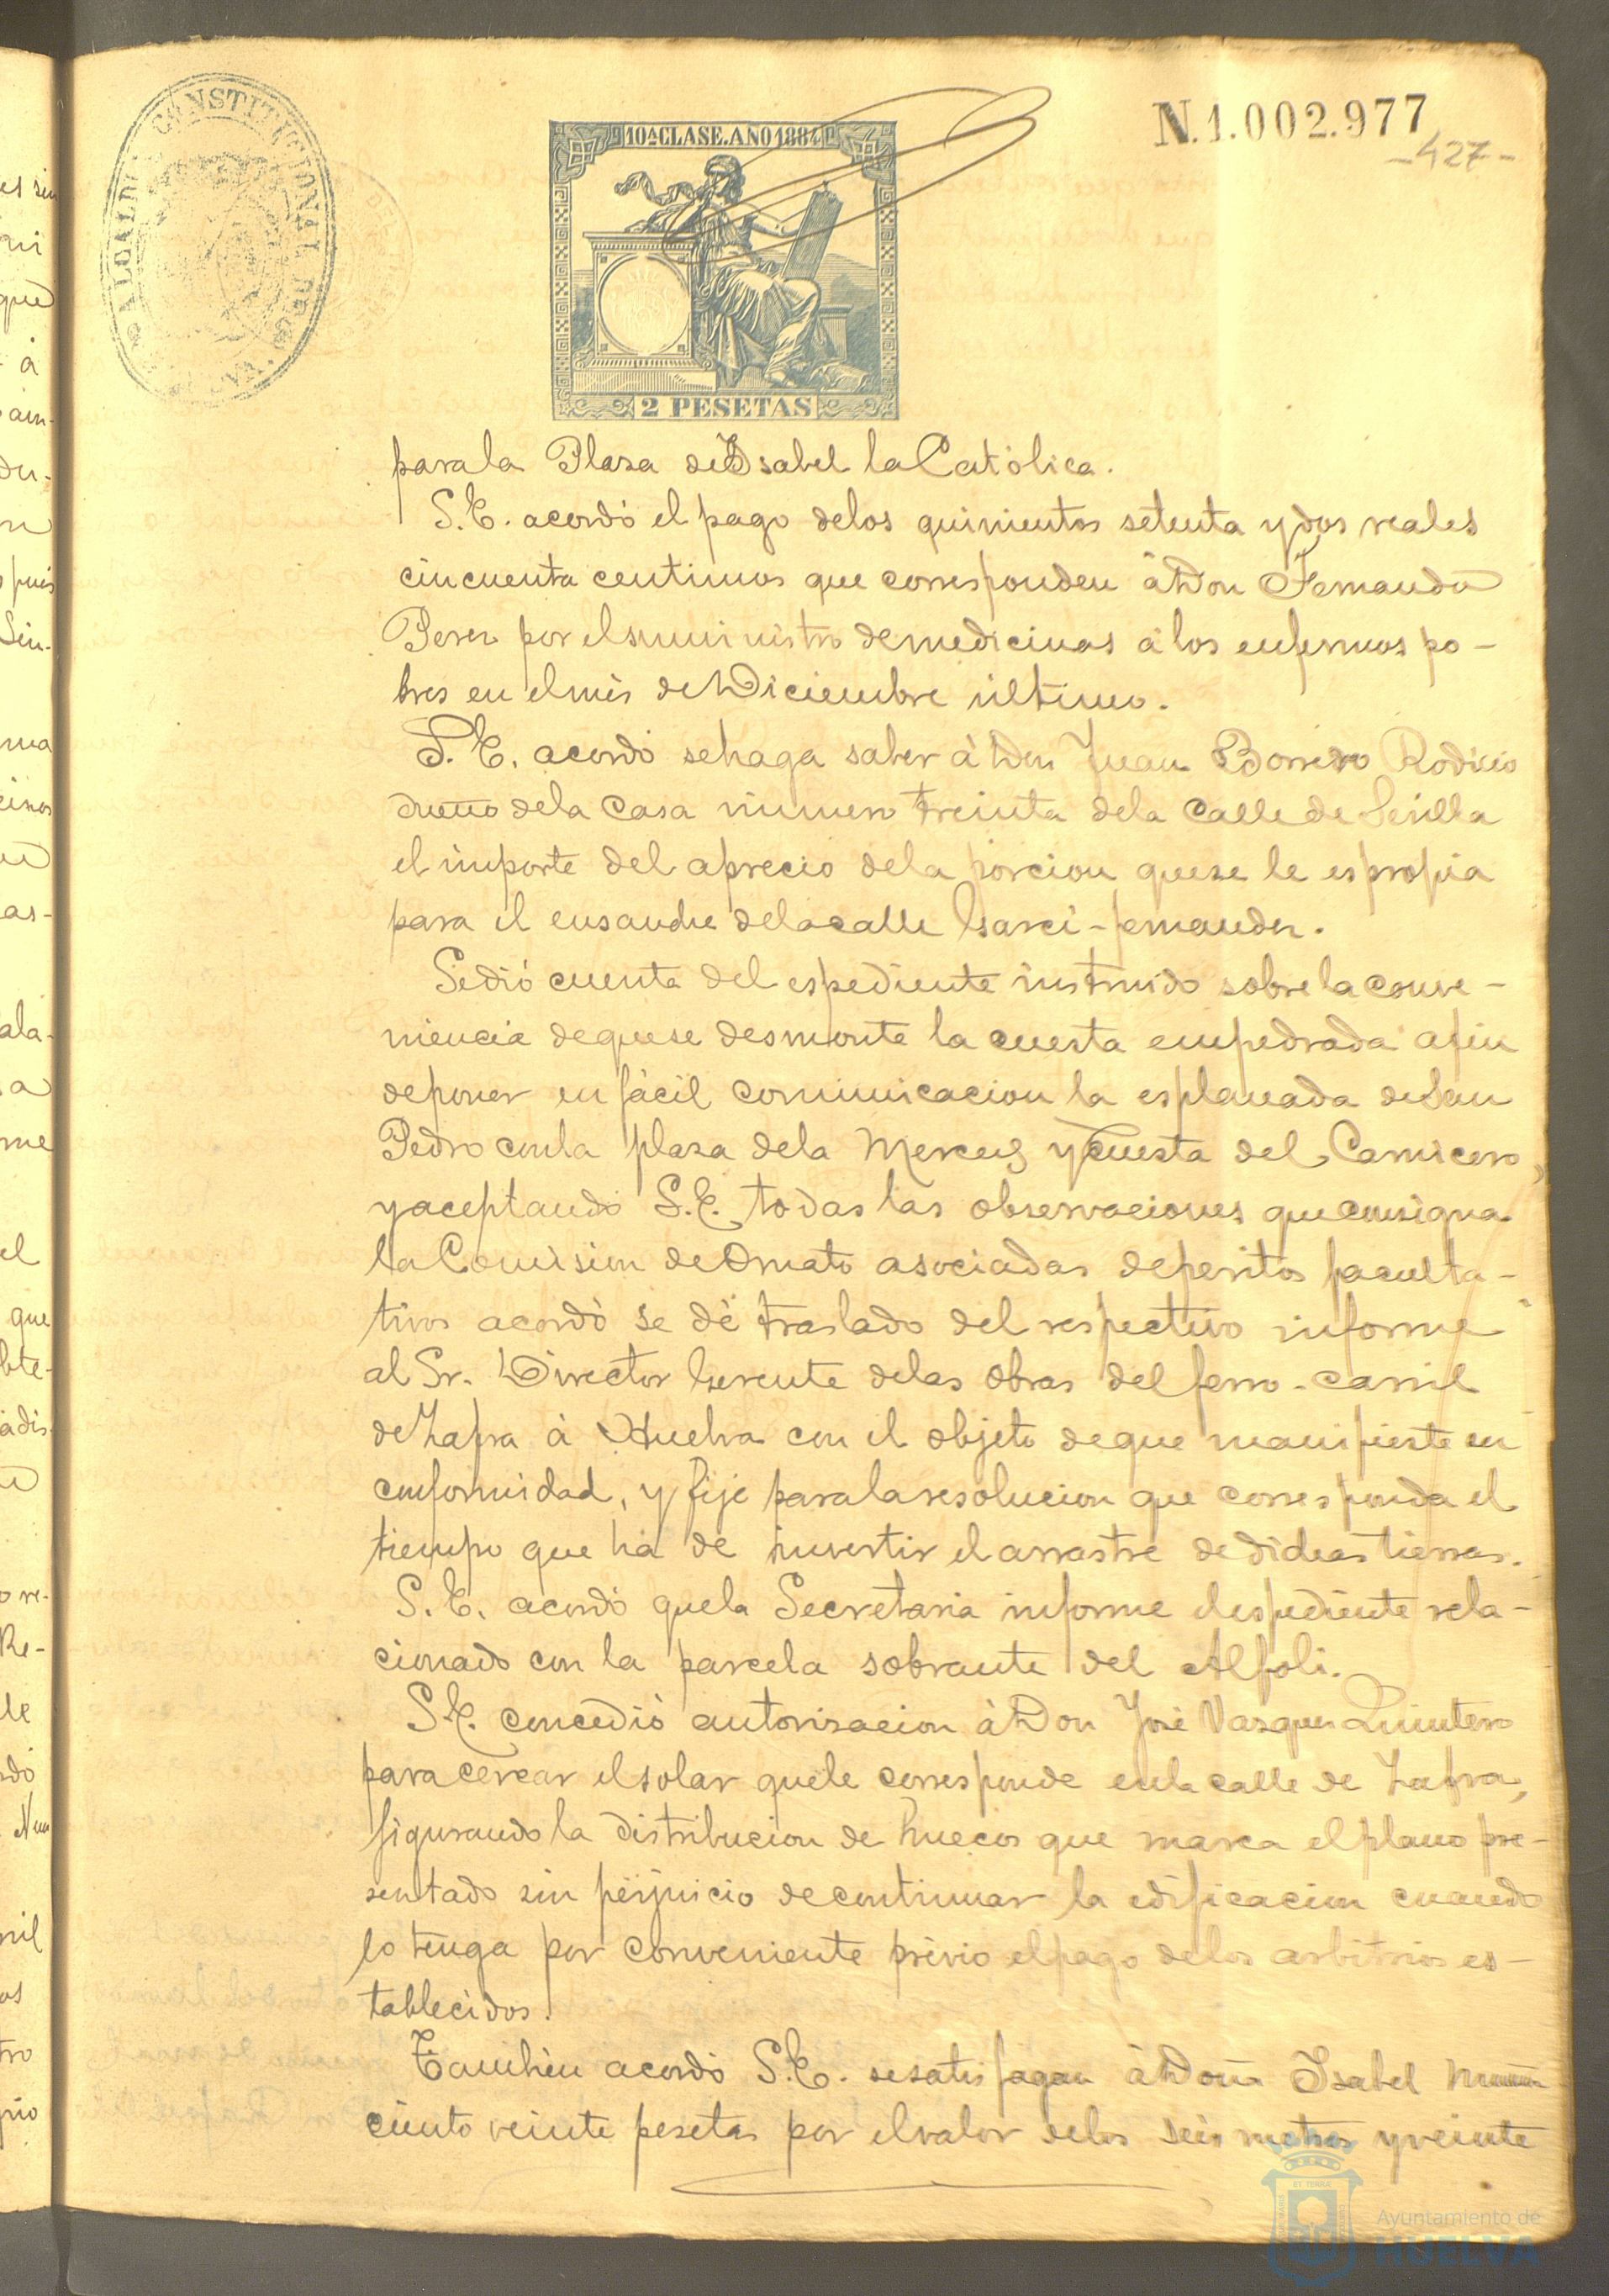 ALCALDIA CONSTITUCIONAL DE HUELVA
10ª CLASE. AÑO 1884
N.1.002.977
-427-
2 PESETAS
para la Plaza de Isabel la Católica.
S.E. acordó el pago de los quinientos setenta y dos reales
cincuenta centimos que corresponden à Don Fernando
Perez por el suministro de medicinas à los enfermos po-
bres en el mes de Diciembre último.
S.E. acordó se haga saber à Don Juan Borrero Rodicio
dueño de la Casa número treinta de la Calle de Sevilla
el importe del aprecio de la porcion que se le espropia
para el ensanche de la calle Garci-fernandez.
Se dió cuenta del espediente instruido sobre la conve-
niencia de que se desmonte la cuesta empedrada a fin
de poner en fácil comunicacion la esplanada de San
Pedro con la plaza de la Merced y Cuesta del Carnicero,
y aceptando S.E. todas las observaciones que consigna
la Comision de Ornato asociadas de peritos faculta-
tivos acordó se dé traslado del respectivo informe
al Sr. Director Gerente de las Obras del ferro-carril
de Zafra à Huelva con el objeto de que manifieste su
conformidad, y fije para la resolucion que corresponda el
tiempo que ha de invertir el arrastre de dichas tierras.
S.E. acordó que la Secretaria informe el espediente rela-
cionado con la parcela sobrante del Alfoli.
S.E. concedió autorizacion à Don José Vazquez Quintero
para cercar el solar que le corresponde en la calle de Zafra,
figurando la distribucion de huecos que marca el plano pre-
sentado sin perjuicio de continuar la edificacion cuando
lo tenga por conveniente prévio el pago de los arbitrios es-
tablecidos.
Tambien acordó S.E. se satisfagan à Doña Isabel
ciento veinte pesetas por el valor de los seis metros y veinte
Ayuntamiento de
HUELVA